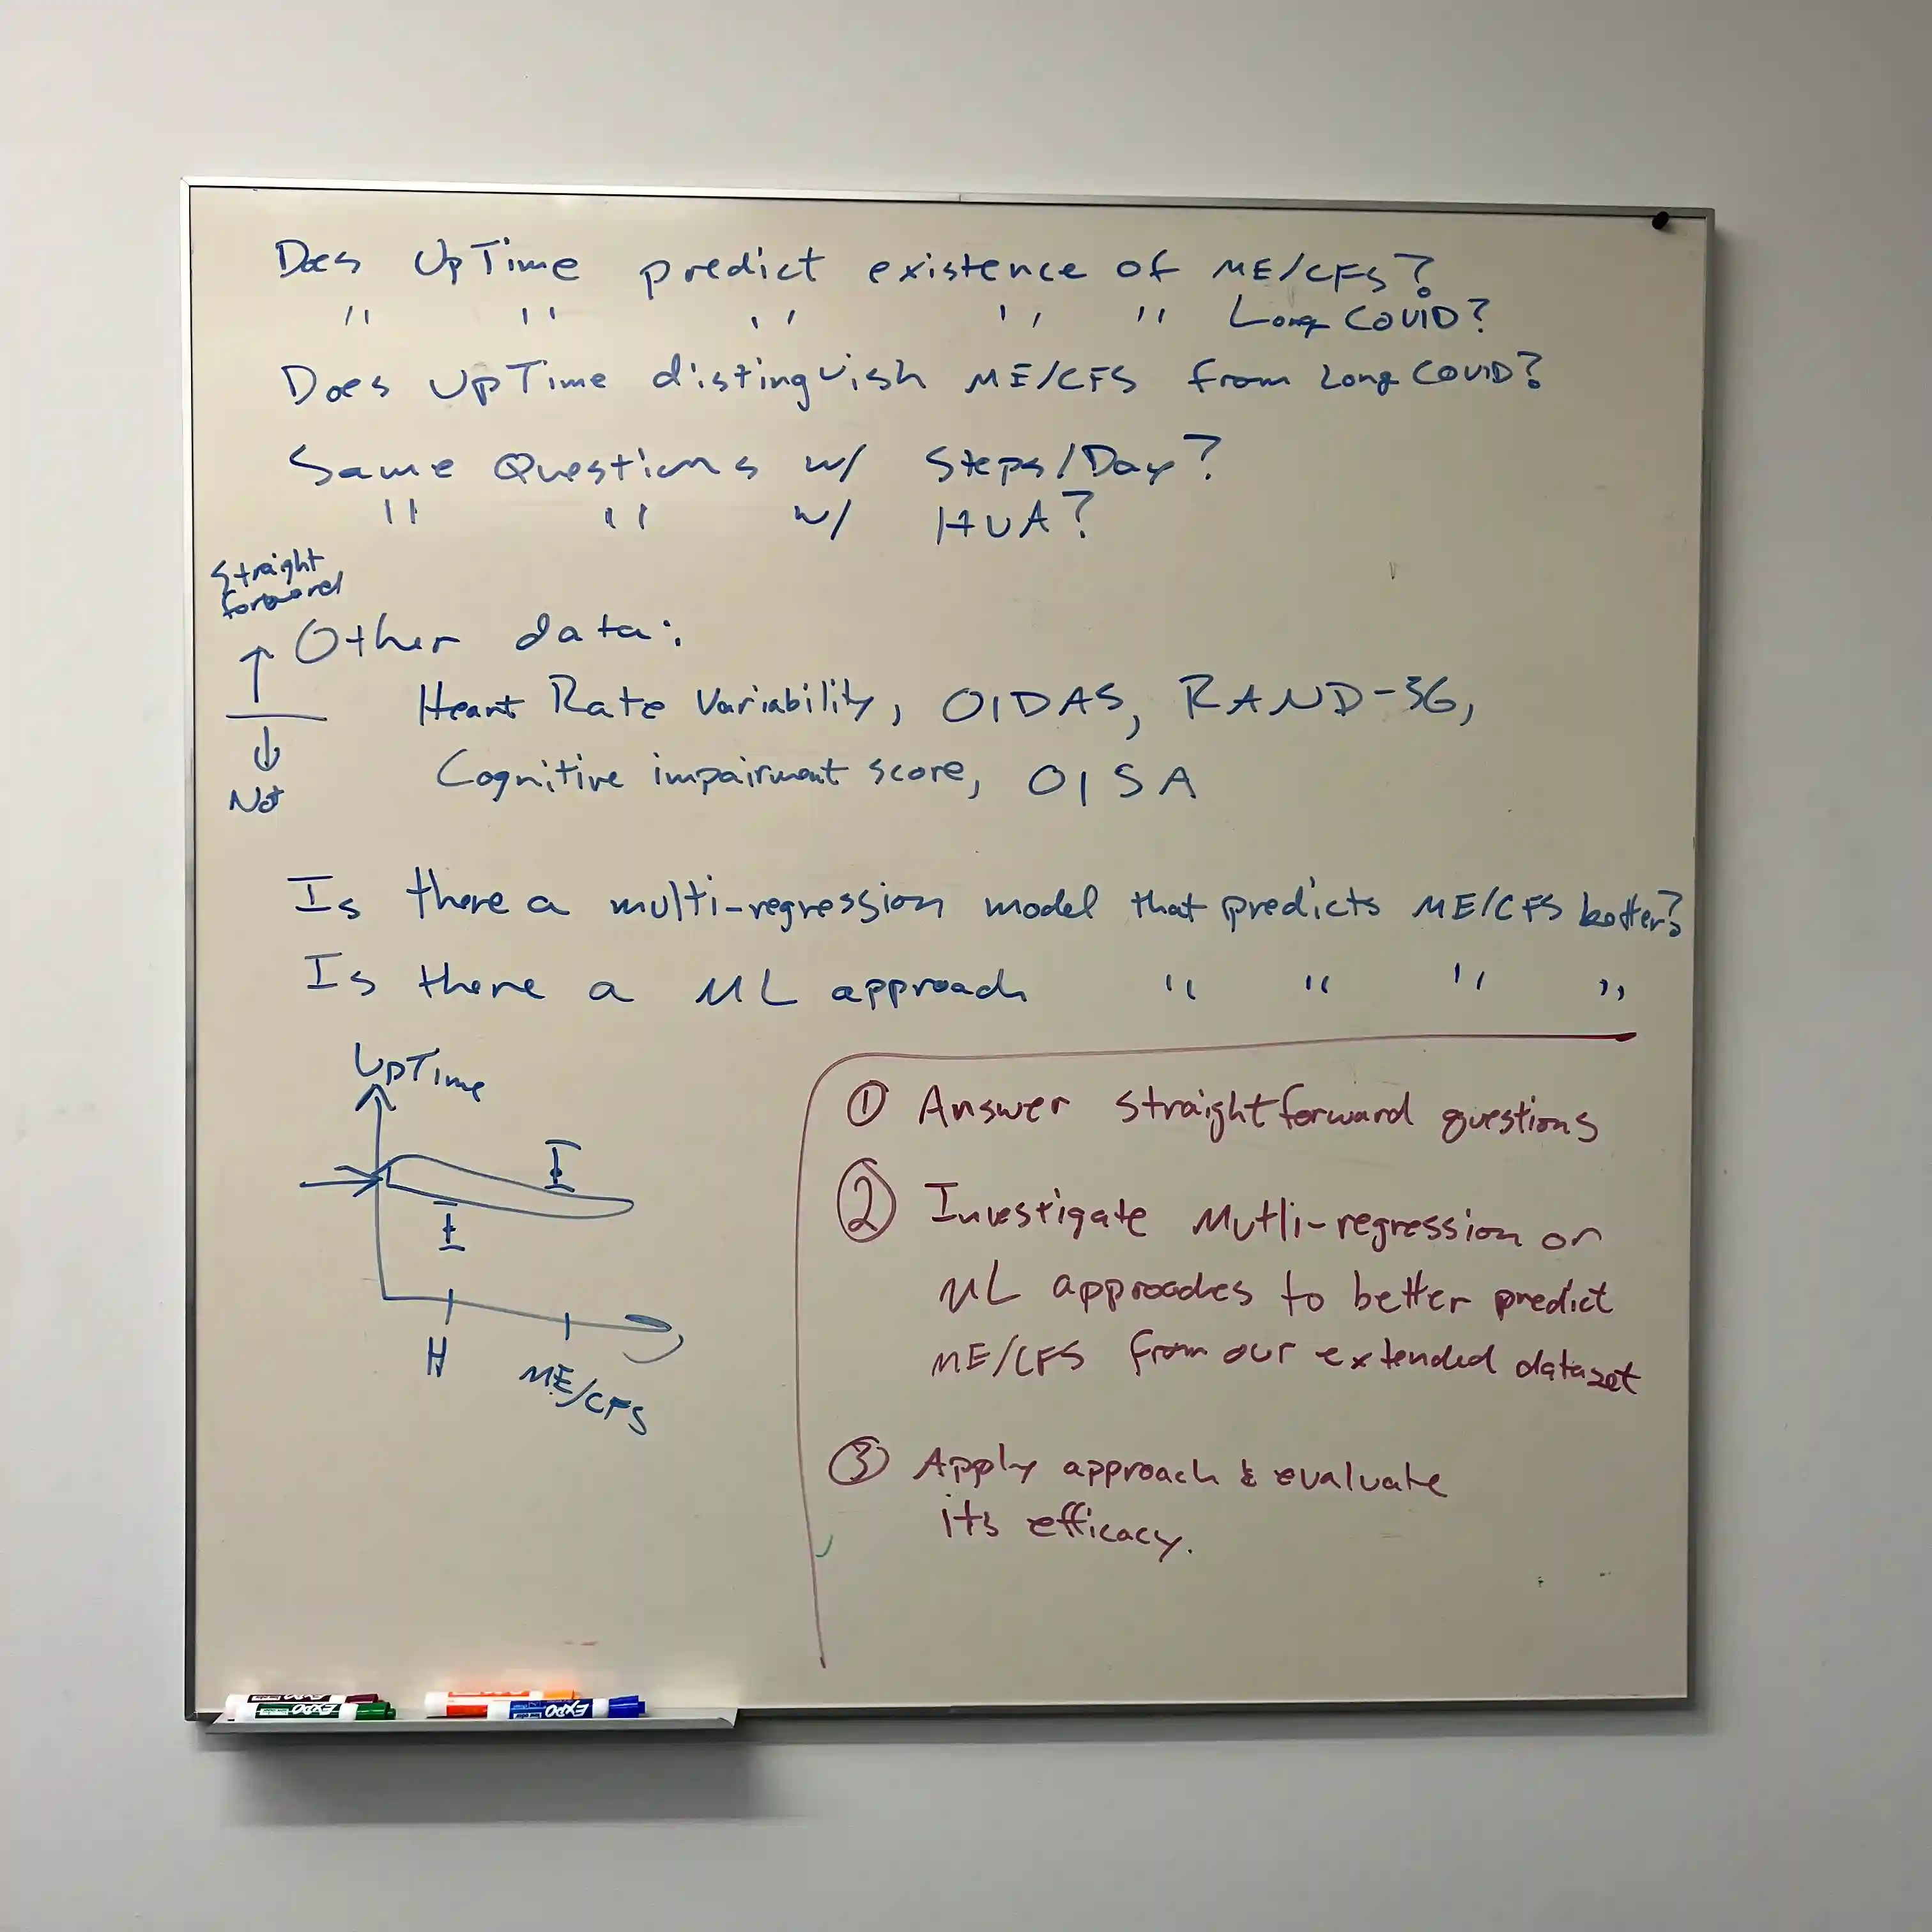 Does UpTime predict existence of ME/CFS?
" " " " " Long COVID?
Does UpTime distinguish ME/CFS from Long COVID?
Same Questions w/ Steps/Day?
" " w/ HUA?
Straight
forward
↑ Other data:
Heart Rate Variability, OIDAS, RAND-36,
↓
Cognitive impairment score, OISA
Not
Is there a multi-regression model that predicts ME/CFS better?
Is there a ML approach " " " "
UpTime
H
ME/CFS
① Answer straightforward questions
② Investigate Mutli-regression or
ML approaches to better predict
ME/CFS from our extended dataset
③ Apply approach & evaluate
its efficacy.
EXPO
EXPO